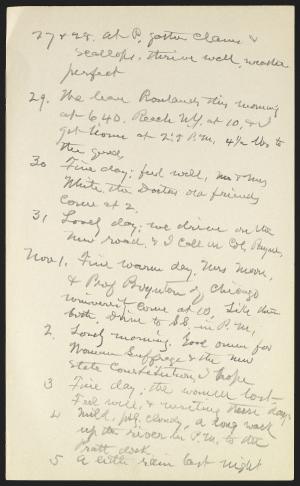 27 & 28. at P, gather clams &
scallops, thrive well, weather
perfect
29. We leave Rowlands this morning
at 6,40. Reach N.Y. at 10, & I
get home at 2 P.M. 4½ lbs to
the good,
30 Fine day; feel well, Mr & Mrs
White, the Doctors old friends
come at 2.
31, Lovely day; we drive on the
new road, & I call on Col, Payne,
Nov 1. Fine warm day, Mrs Moore,
& Prof Boynton of Chicago
university come at 10, like them
both Drive to S.S. in P.M,
2. Lovely morning. Good omen for
Woman Suffrage & the new
State Constitution, I hope
3 Fine day. the women lost—
Feel well, & writing these days.
4 Mild, ptly cloudy, a long walk
up the river in P.M. to the
Pratt dock
5 a little rain last night